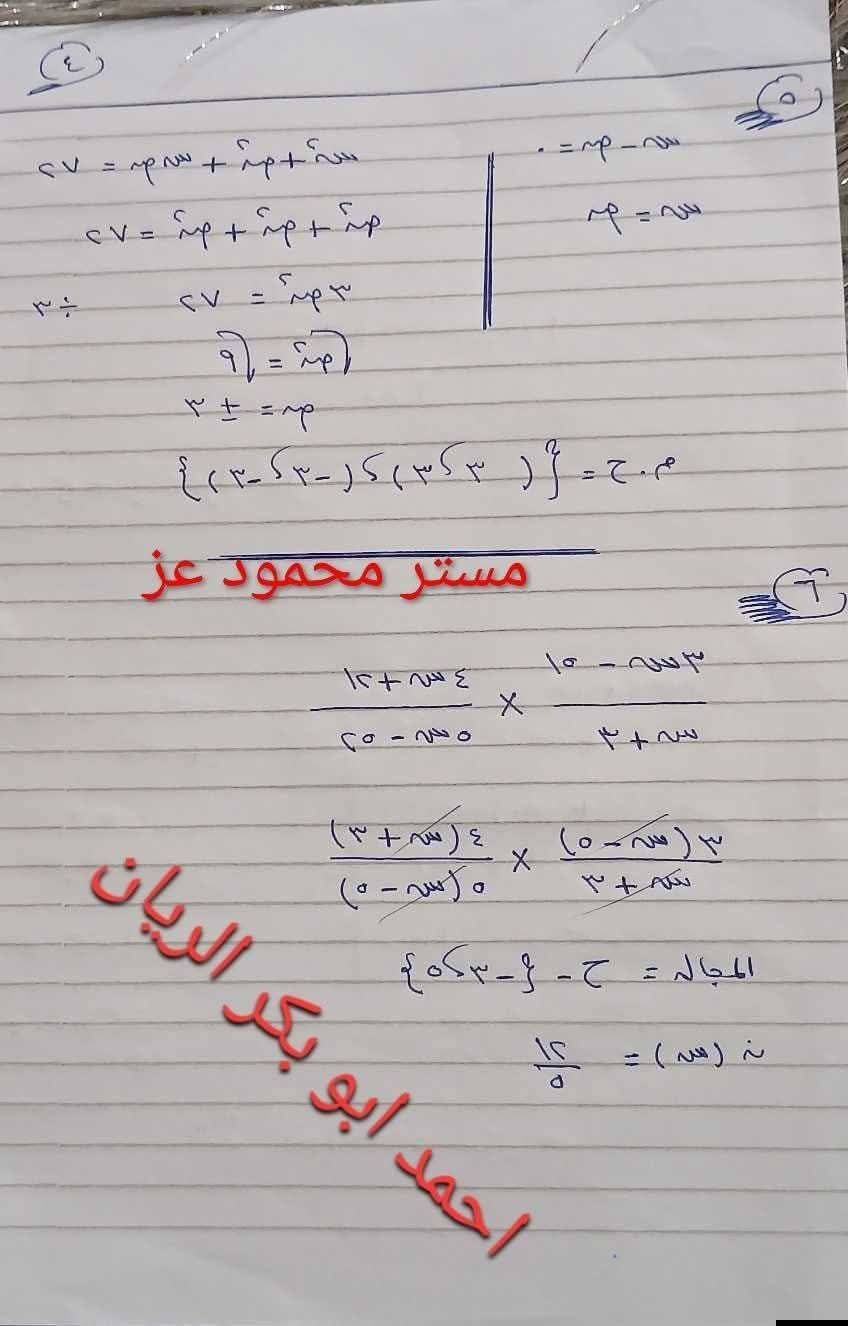 ٤
٥
س - ص = ٠
س = ص
س٢ + ص٢ + س ص = ٢٧
ص٢ + ص٢ + ص٢ = ٢٧
٣ص٢ = ٢٧ ÷٣
√ص٢ = √٩
ص = ± ٣
م.ح = {(٣،٣)،(-٣،-٣)}
مستر محمود عز
٦
(٣س - ١٥)/(س + ٣) × (٤س + ١٢)/(٥س - ٢٥)
٣(س - ٥)/(س + ٣) × ٤(س + ٣)/٥(س - ٥)
المجال = ح - {-٣،٥}
ن(س) = ١٢/٥
احمد ابو بكر الريان